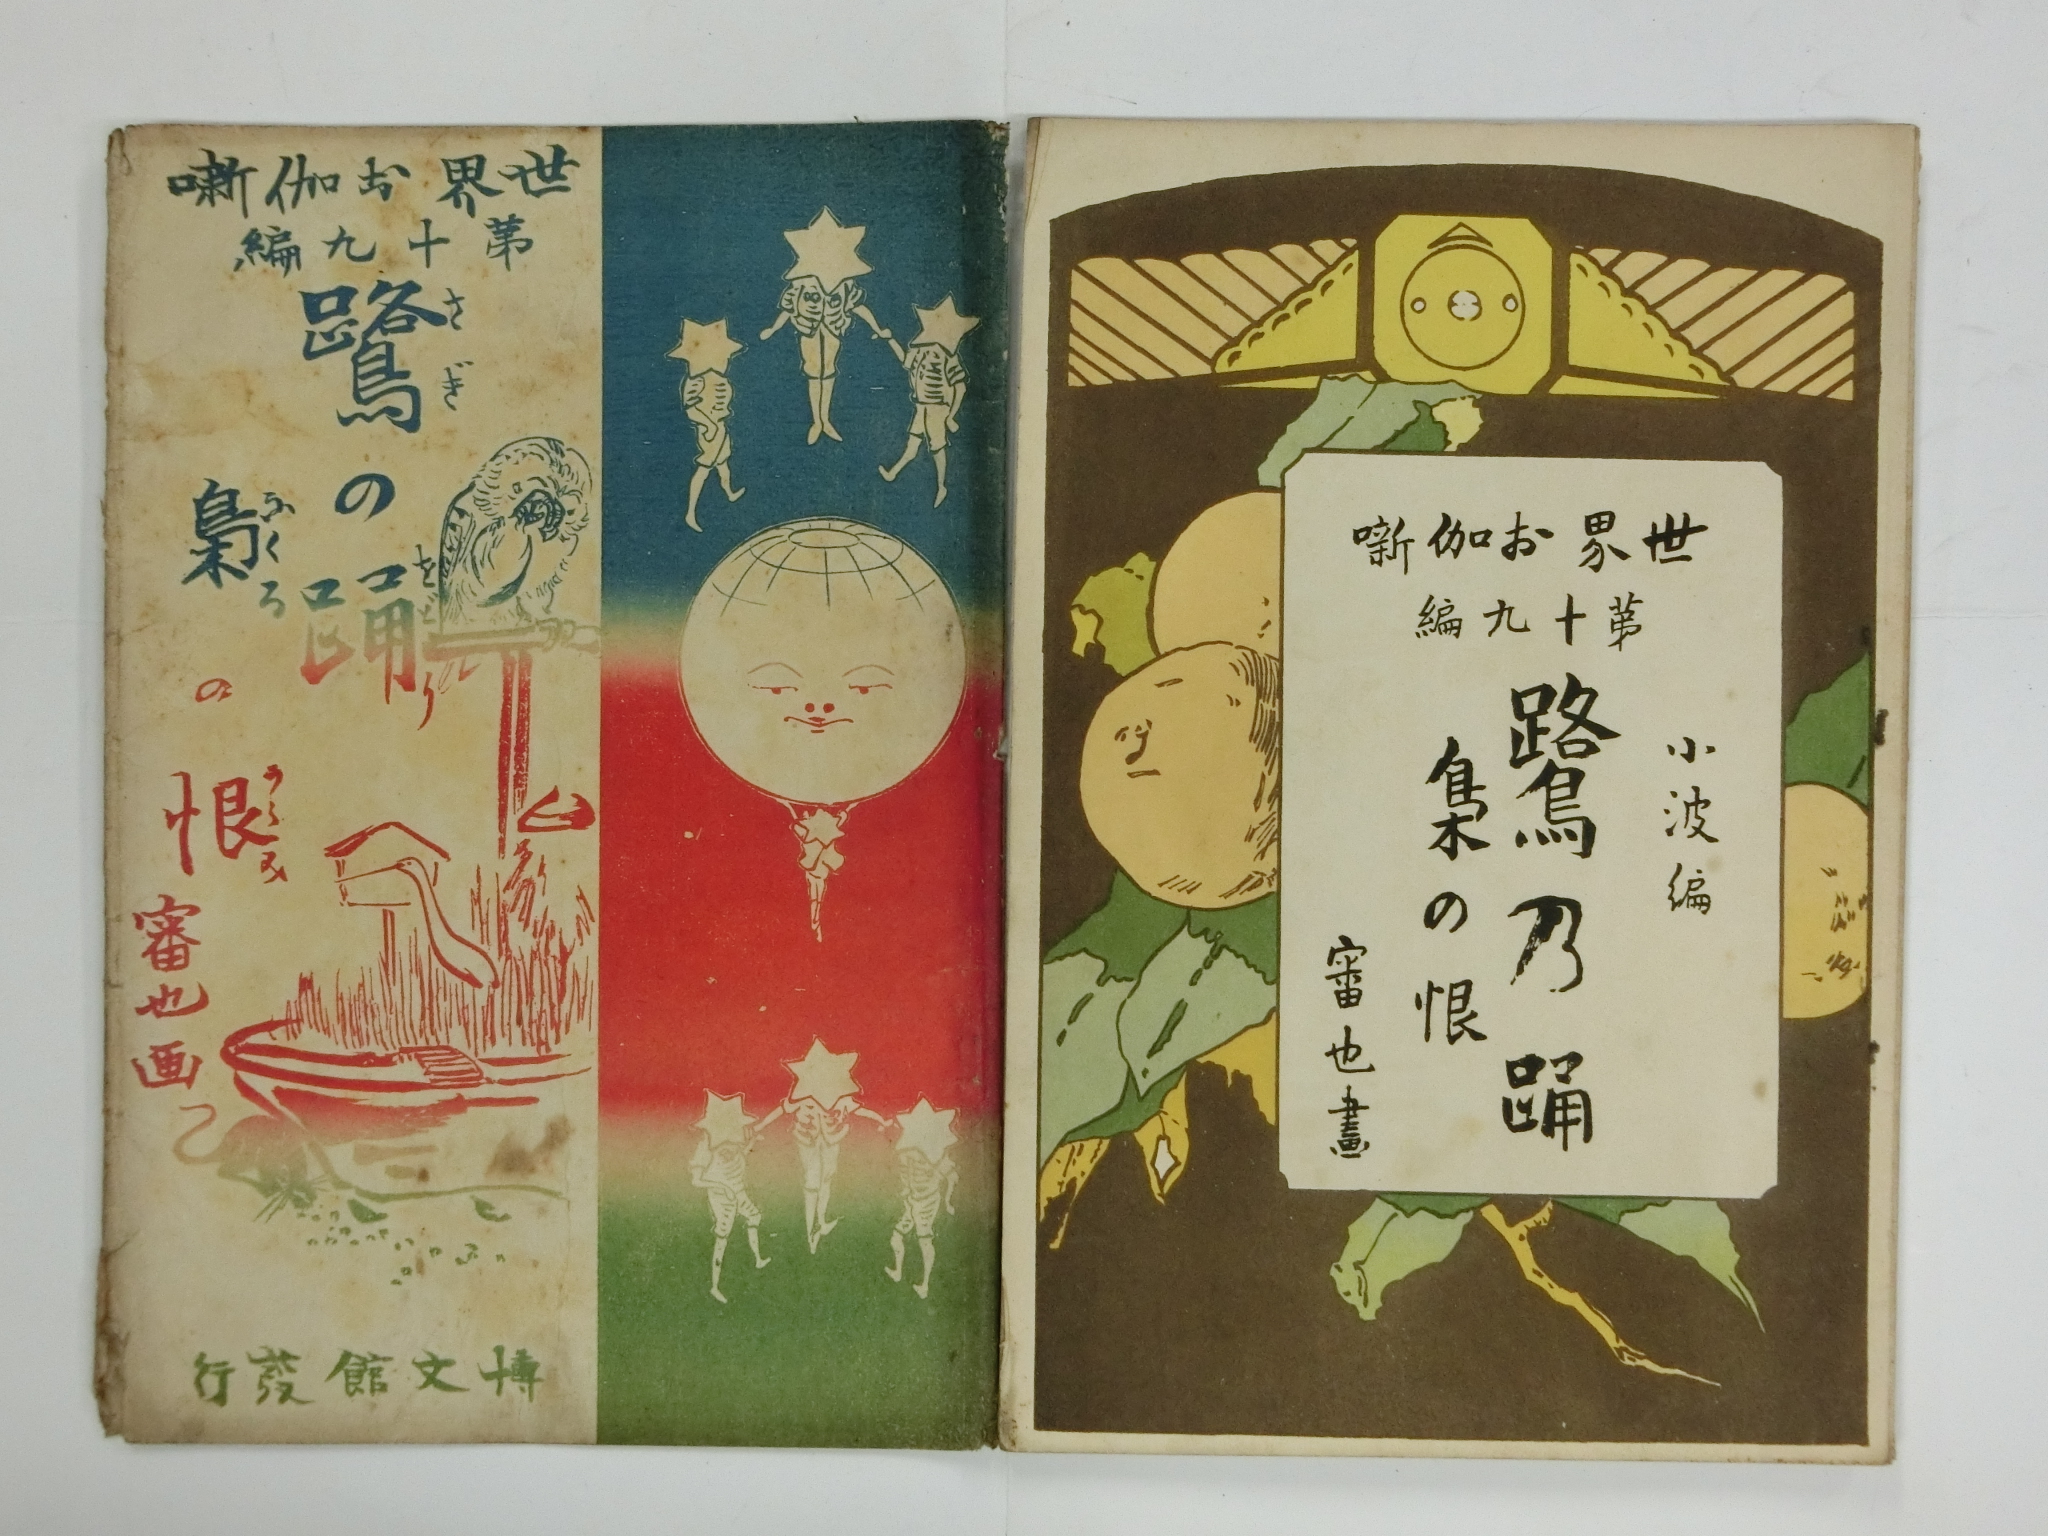 世界お伽噺
第十九編
鷺の踊
さぎ
をどり
梟の恨
ふくろ
うらみ
審也画
博文館發行
世界お伽噺
第十九編
小波編
鷺乃踊
梟の恨
審也畫